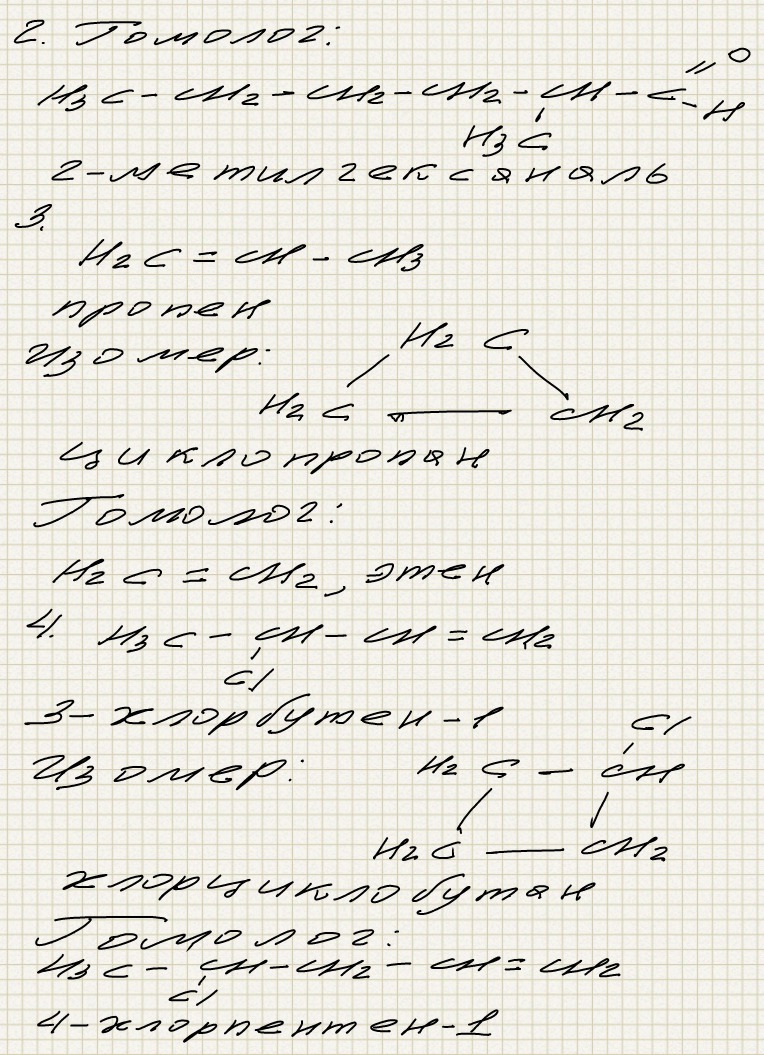 2. Гомолог:
H3C-CH2-CH2-CH2-CH-C=O
-H
H3C
2-метилгексаналь
3.
H2C=CH-CH3
пропен
Изомер: H2C
H2C — CH2
циклопропан
Гомолог:
H2C=CH2, этен
4. H3C-CH-CH=CH2
Cl
3-хлорбутен-1
Cl
Изомер: H2C-CH
H2C — CH2
хлорциклобутан
Гомолог:
H3C-CH-CH2-CH=CH2
Cl
4-хлорпентен-1